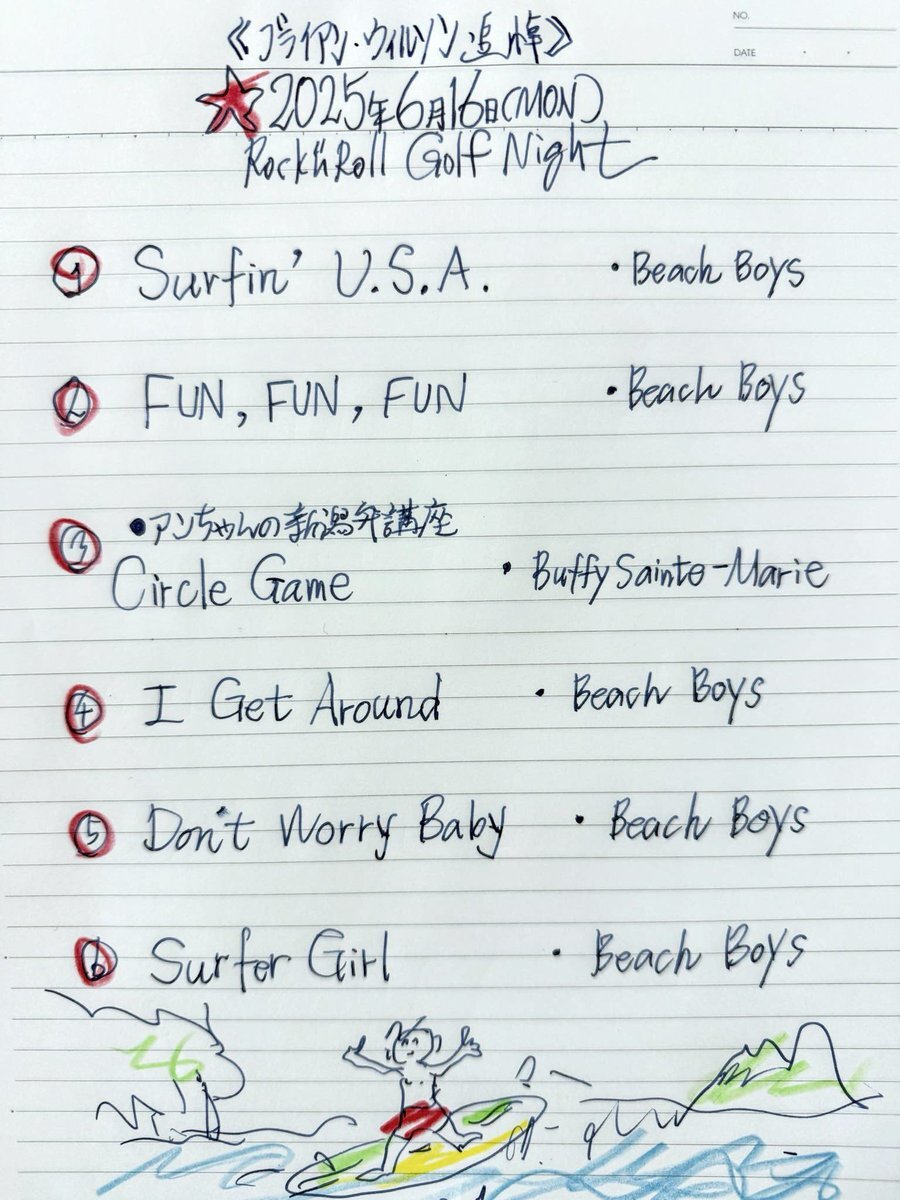 《ブライアン・ウィルソン追悼》
NO.
DATE
2025年6月16日(MON)
Rock'n Roll Golf Night
① Surfin' U.S.A. ・Beach Boys
② FUN, FUN, FUN ・Beach Boys
③ ●アンちゃんの新潟弁講座
Circle Game ・Buffy Sainte-Marie
④ I Get Around ・Beach Boys
⑤ Don't Worry Baby ・Beach Boys
⑥ Surfer Girl ・Beach Boys